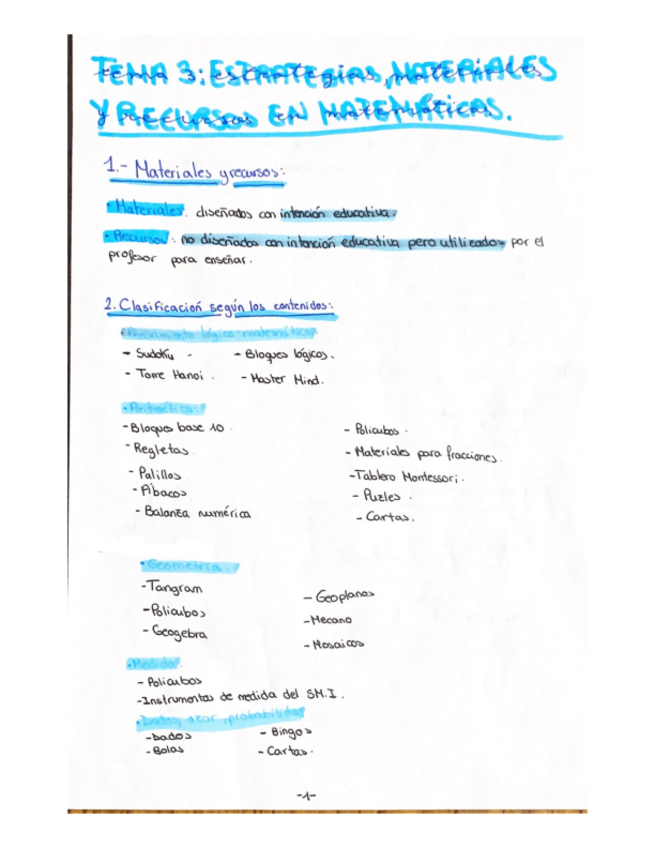 TEMA 3: ESTRATEGIAS, MATERIALES
Y RECURSOS EN MATEMÁTICAS.
1.- Materiales y recursos:
• Materiales: diseñados con intención educativa.
• Recursos: no diseñados con intención educativa pero utilizados por el
profesor para enseñar.
2. Clasificación según los contenidos:
• Pensamiento lógico-matemático
- Sudoku - - Bloques lógicos.
- Torre Hanoi. - Master Mind.
• Aritmética:
- Bloques base 10
- Regletas
- Palillos
- Ábacos
- Balanza numérica
- Policubos.
- Materiales para fracciones.
- Tablero Montessori.
- Puzles.
- Cartas.
• Geometría:
- Tangram
- Policubos
- Geogebra
- Geoplanos
- Mecano
- Mosaicos
• Medida:
- Policubos
- Instrumentos de medida del S.M.I.
• Datos, azar, probabilidad
- Dados
- Bolas
- Bingos
- Cartas.
-1-